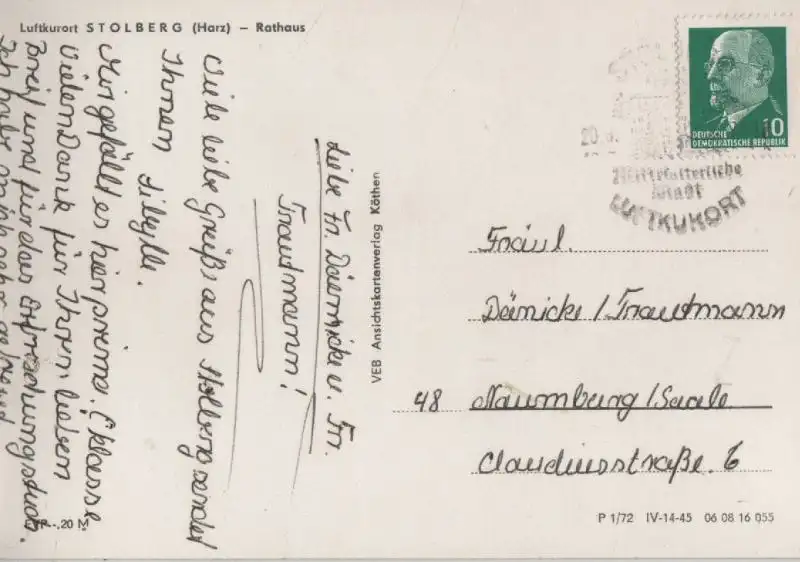 Luftkurort STOLBERG (Harz) – Rathaus
DEUTSCHE
DEMOKRATISCHE REPUBLIK
10
20
Mittelalterliche
Stadt
LUFTKURORT
Liebe Fr. Däernicke u. Frr.
Trautmann!
Viele liebe Grüße aus Stolberg sendet
Ihnen Sibylle.
Mir gefällt es hier prima. (Klasse
Vielen Dank für Ihren lieben
Brief und für das Erfrischungstuch.
Ich habe mich sehr gefreut
VEB Ansichtskartenverlag Köthen
Fräul.
Dänicke / Trautmann
48 Naumburg / Saale
Claudiusstraße. 6
-,20 M
P 1/72 IV-14-45 06 08 16 055